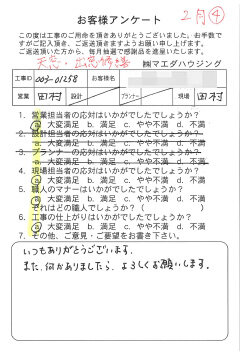 2月④
お客様アンケート
この度は工事のご用命を頂きありがとうございました。お手数で
すがご記入頂き、ご返送頂きますようお願い申し上げます。
ご返送頂いた方から、毎月抽選で感謝品を進呈いたします。
㈱マエダハウジング
工事ID 003-01258 お客様名
営業 田村 設計 プランナー 現場 田村
1. 営業担当者の応対はいかがでしたでしょうか?
a 大変満足 b. 満足 c. やや不満 d. 不満
2. 設計担当者の応対はいかがでしたでしょうか?
a. 大変満足 b. 満足 c. やや不満 d. 不満
3. プランナーの応対はいかがでしたでしょうか?
a. 大変満足 b. 満足 c. やや不満 d. 不満
4. 現場担当者の応対はいかがでしたでしょうか?
a 大変満足 b. 満足 c. やや不満 d. 不満
5. 職人のマナーはいかがでしたでしょうか?
a 大変満足 b. 満足 c. やや不満 d. 不満
それはどの職人でしょうか?( )
6. 工事の仕上がりはいかがでしたでしょうか?
a 大変満足 b. 満足 c. やや不満 d. 不満
7. その他、ご意見・ご要望をお書き下さい。
いつもありがとうございます。
また、何かありましたら、よろしくお願いします。